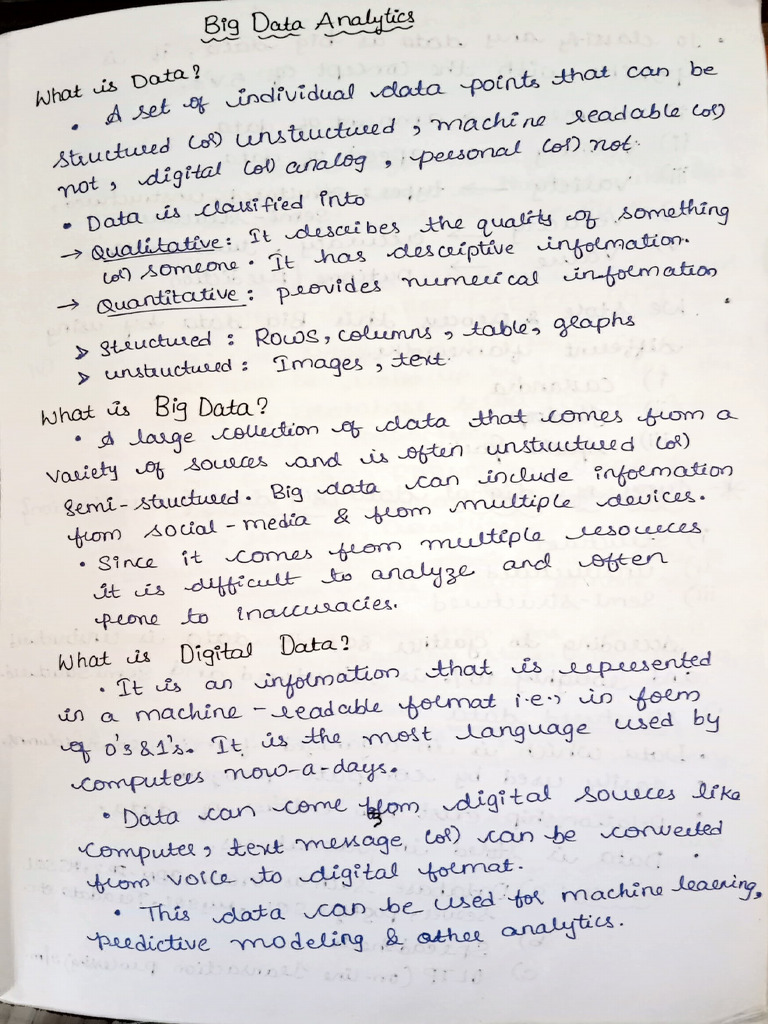 Big Data Analytics
What is Data?
• A set of individual data points that can be
structured (or) unstructured, machine readable (or)
not, digital (or) analog, personal (or) not.
• Data is classified into
→ Qualitative: It describes the quality of something
(or) someone. It has descriptive information.
→ Quantitative: provides numerical information
> Structured: Rows, columns, table, graphs
> unstructured: Images, text.
What is Big Data?
• A large collection of data that comes from a
variety of sources and is often unstructured (or)
semi-structured. Big data can include information
from social-media & from multiple devices.
• Since it comes from multiple resources
it is difficult to analyze and often
prone to inaccuracies.
What is Digital Data?
• It is an information that is represented
in a machine-readable format i.e., in form
of 0's & 1's. It is the most language used by
computers now-a-days.
• Data can come from digital sources like
computer, text message (or) can be converted
from voice to digital format.
• This data can be used for machine learning,
predictive modeling & other analytics.